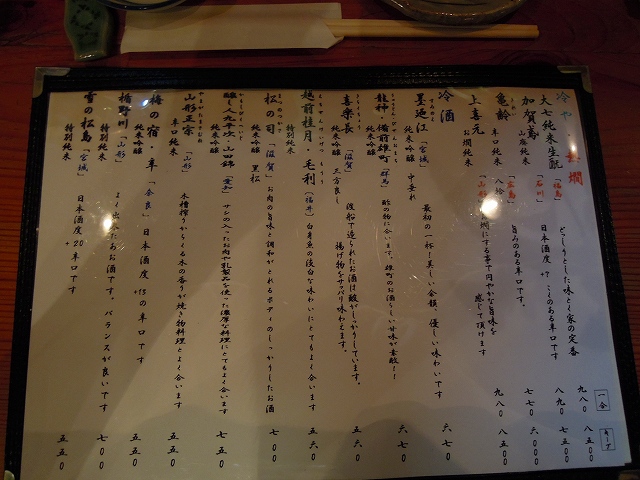 冷や・燗
一合
大七純米生酛「福島」
どっしりとした味とく家の定番
九八〇
八五〇
加賀鳶「石川」
山廃純米
日本酒度 +7 こくのある辛口です
八九〇
五〇
亀齢「広島」
辛口純米 八拾
旨みのある辛口です。
七七〇
六〇〇〇
上喜元「山形」
お燗純米
燗にする事で円やかな旨味を
感じて頂けます
九八〇
八五〇
冷酒
墨廼江「宮城」
すみのえ
純米吟醸 中垂れ
最初の一杯に美しい余韻、優しい味わいです
六七〇
龍神・備前雄町「群馬」
純米吟醸
酢の物に合います。雄町のお酒らしい甘味が素敵!!
六七〇
喜楽長「滋賀」
純米吟醸 三方良し
渡船で造られたお酒は酸がしっかりしています。
揚げ物をサッパリ味わえます。
五六〇
越前桂月・毛利「福井」
特別純米
白身魚の淡白な味わいにとてもよく合います
五六〇
松の司「滋賀」
まつのつかさ
純米吟醸 黒松
お肉の旨味と調和がとれるボディのしっかりしたお酒
七〇〇
醸し人九平次・山田錦「愛知」
純米吟醸
サシの入ったお肉や乳製品を使った濃厚な料理にとてもよく合います
七五〇
山形正宗「山形」
やまがたまさむね
辛口純米
木槽搾りからくる木の香りが焼き物料理とよく合います
五五〇
梅の宿・辛「奈良」
純米吟醸
日本酒度 +13の辛口です
五五〇
楯野川「山形」
特別純米
よく出来たお酒です。バランスが良いです
七〇〇
雪の松島「宮城」
特別純米
日本酒度 +20 辛口です
五五〇